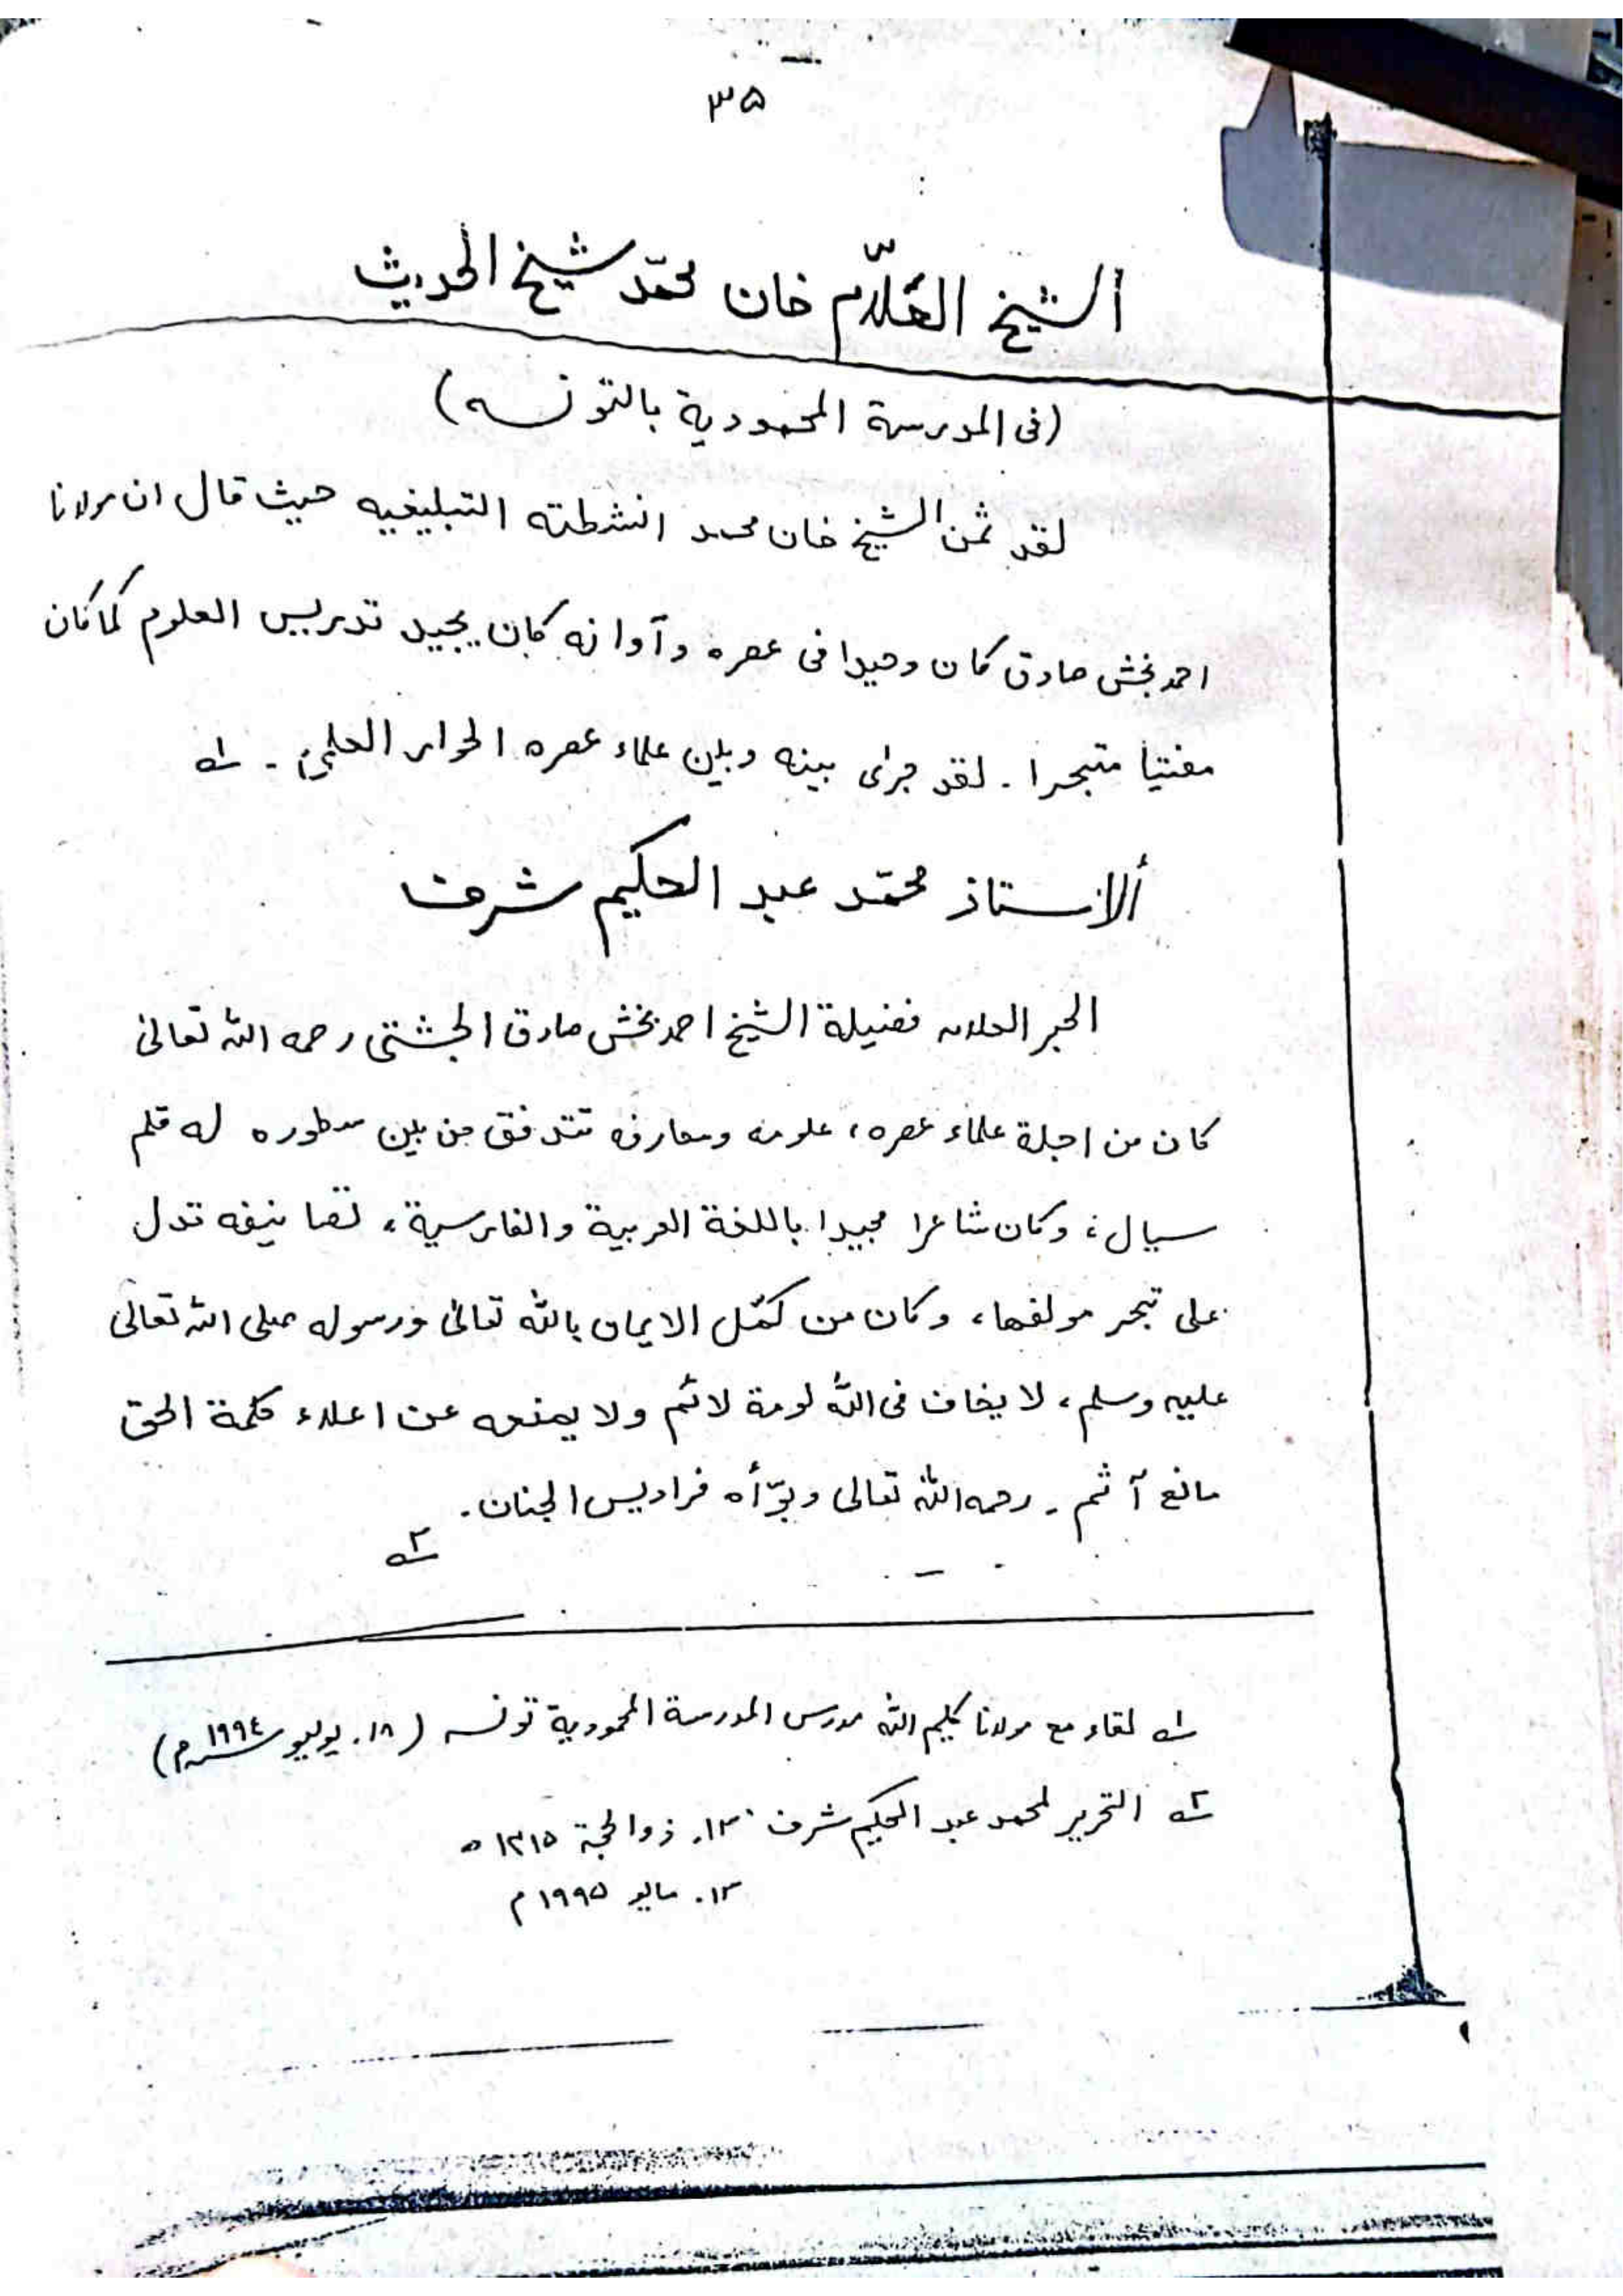 ٣٥
ألشيخ العلّام خان محمّد شيخ الحديث
(فى المدرسة المحمودية بالتونسه)
لقد ثمن الشيخ خان محمد انشطته التبليغيه حيث قال ان مولانا
احمد بخش صادق كان وحيدا فى عصره وآوانه كان يجيد تدريس العلوم كما كان
مفتيا متبحرا ـ لقد جرى بينه وبين علماء عصره الحوار العلمى ـ ١ـه
ألاستاذ محمّد عبد الحكيم شرف
الحبر العلامه فضيلة الشيخ احمد بخش صادق الچشتى رحمه الله تعالى
كان من اجلة علماء عصره، علومه ومعارفه تتدفق من بين سطوره له قلم
سيال، وكان شاعرا مجيدا باللغة العربية والفارسية، تصانيفه تدل
على تبحر مولفها، وكان من كمّل الايمان بالله تعالى ورسوله صلى الله تعالى
عليه وسلم، لا يخاف فى الله لومة لائم ولا يمنعه عن اعلاء كلمة الحق
مانع آثم ـ رحمه الله تعالى وبوّأه فراديس الجنان.
٢ـه
١ـه لقاء مع مولانا كليم الله مدرس المدرسة المحمودية تونسه (١٨. يوليو سـ١٩٩٤ـم)
٢ـه التحرير لمحمد عبد الحكيم شرف ١٣. ذوالحجة ١٤١٥ ه
١٣. مايو ١٩٩٥ م